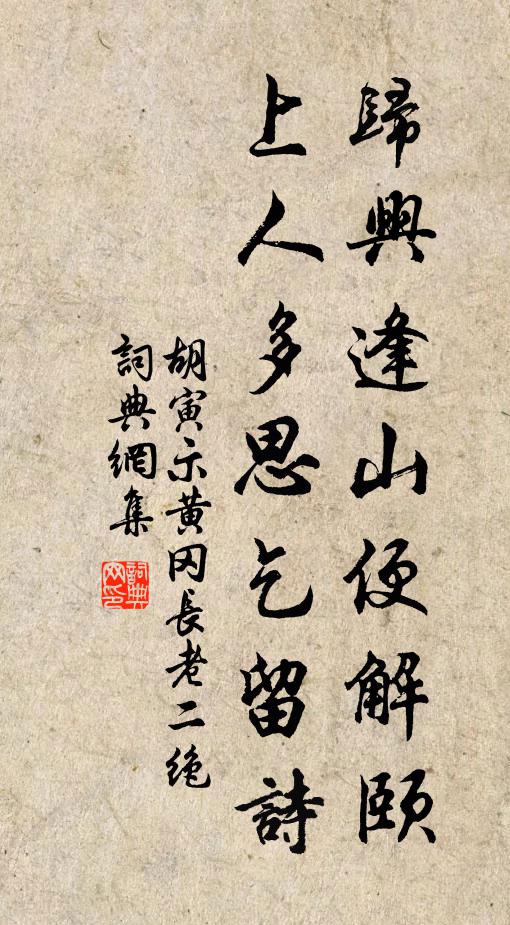 歸興逢山便解頤
上人多思乞留詩
胡寅示黄冈長老二绝
詞典網集
詞典网印